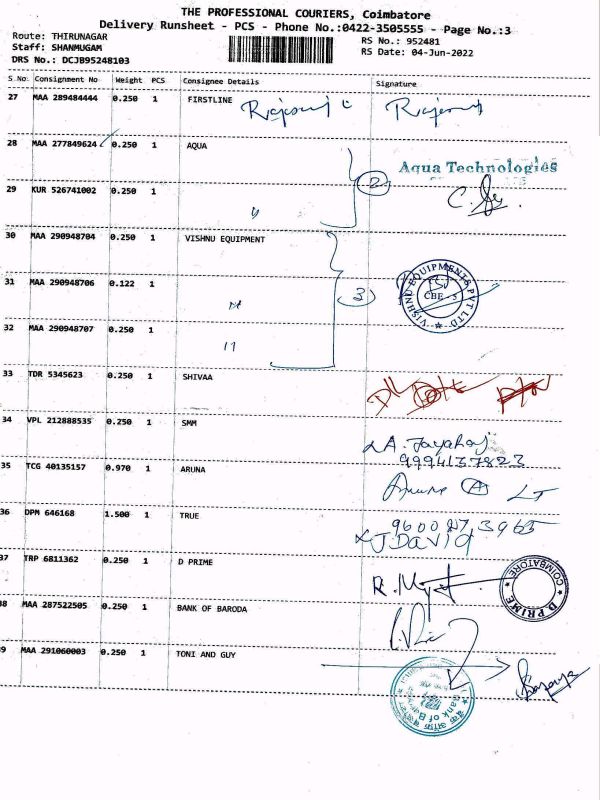 THE PROFESSIONAL COURIERS, Coimbatore
Delivery Runsheet - PCS - Phone No.:0422-3505555 - Page No.:3
Route: THIRUNAGAR
RS No.: 952481
Staff: SHANMUGAM
RS Date: 04-Jun-2022
DRS No.: DCJB95248103
S No. Consignment No Weight PCS Consignee Details Signature
27 MAA 289484444 0.250 1 FIRSTLINE
28 MAA 277849624 0.250 1 AQUA
Aqua Technologies
2
29 KUR 526741002 0.250 1
30 MAA 290948704 0.250 1 VISHNU EQUIPMENT
VISHNU EQUIPMENTS PVT LTD
CBE - 5
31 MAA 290948706 0.122 1
3
32 MAA 290948707 0.250 1 11
33 TDR 5345623 0.250 1 SHIVAA
34 VPL 212888535 0.250 1 SMM
A. Jayaraj
9994137823
35 TCG 40135157 0.970 1 ARUNA
Aruna A
36 DPM 646168 1.500 1 TRUE
J David
37 TRP 6811362 0.250 1 D PRIME
D PRIME COIMBATORE
38 MAA 287522505 0.250 1 BANK OF BARODA
39 MAA 291060003 0.250 1 TONI AND GUY
Bank of B